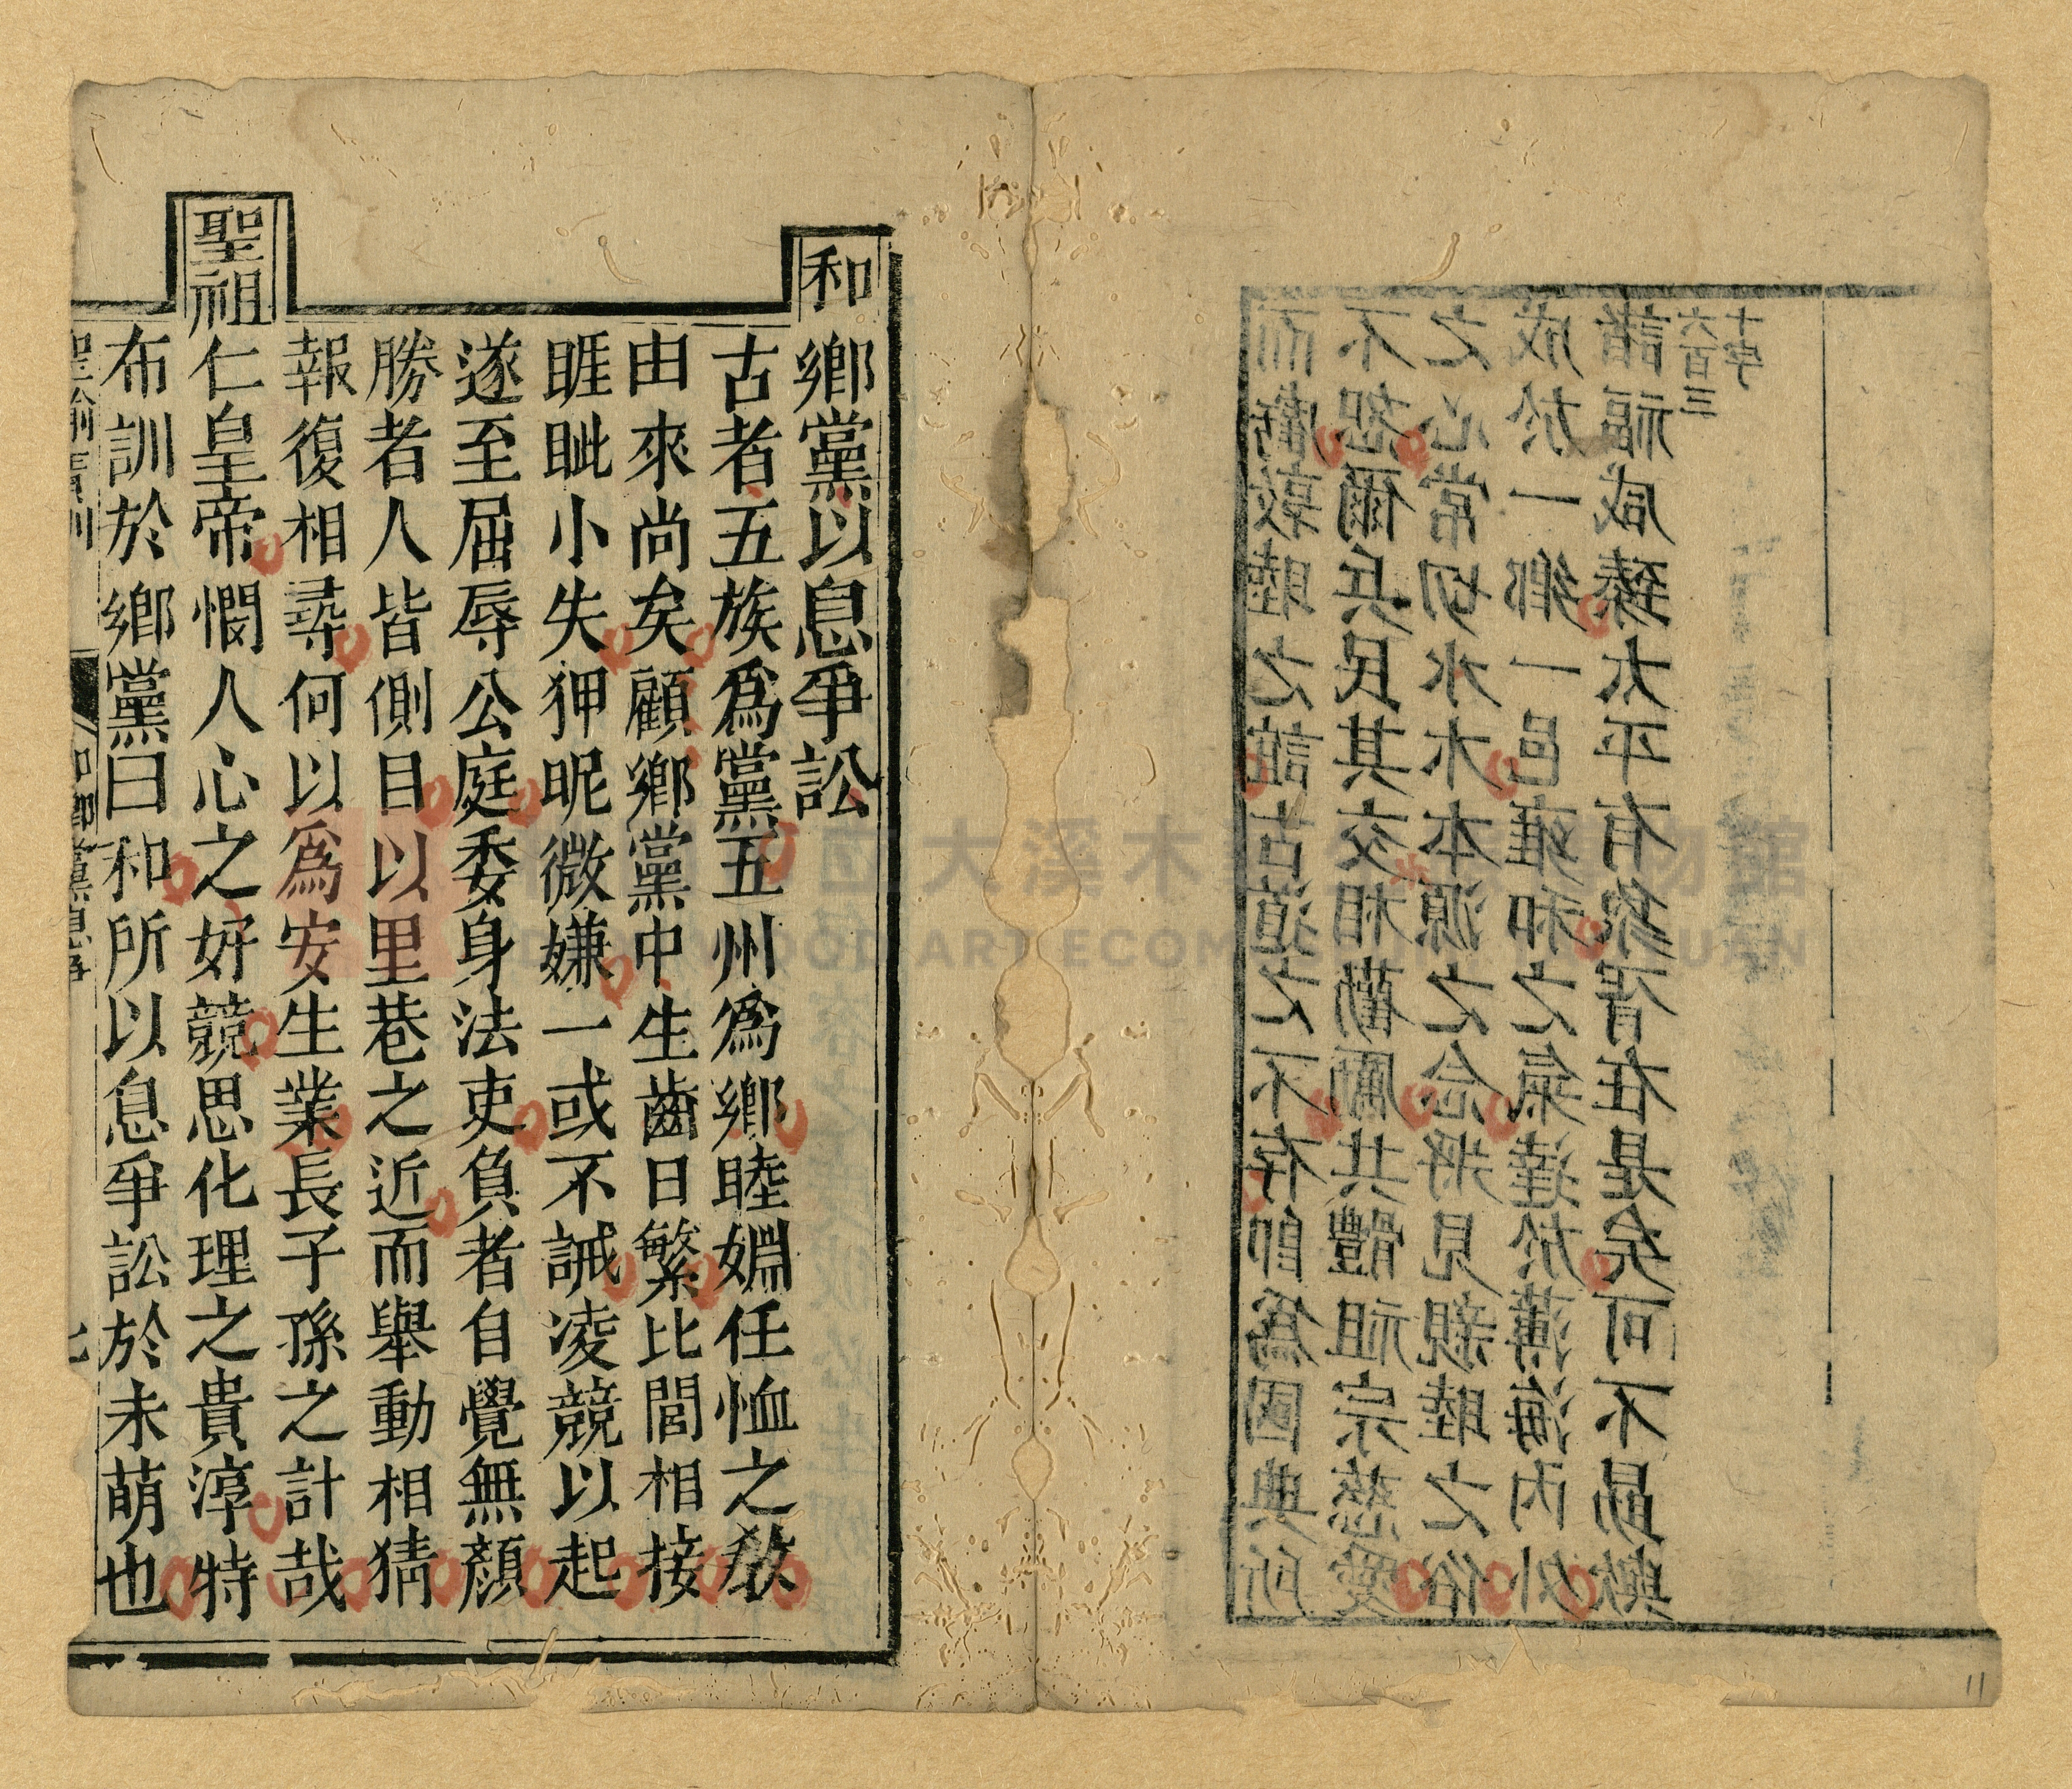 而虧敦睦之誼古道之不存即為國典所
不恕爾兵民其交相勸勵共體祖宗慈愛
之心常切水木本源之念將見親睦之俗
成於一鄉一邑雍和之氣達於薄海內外
諸福咸臻太平有象胥在是矣可不勗歟
六百三
十字
和鄉黨以息爭訟
古者五族爲黨五州爲鄉睦婣任恤之教
由來尚矣顧鄉黨中生齒日繁比閭相接
睚眦小失狎昵微嫌一或不誡凌競以起
遂至屈辱公庭委身法吏負者自覺無顏
勝者人皆側目以里巷之近而舉動相猜
報復相尋何以爲安生業長子孫之計哉
聖祖仁皇帝憫人心之好競思化理之貴淳特
布訓於鄉黨曰和所以息爭訟於未萌也
11